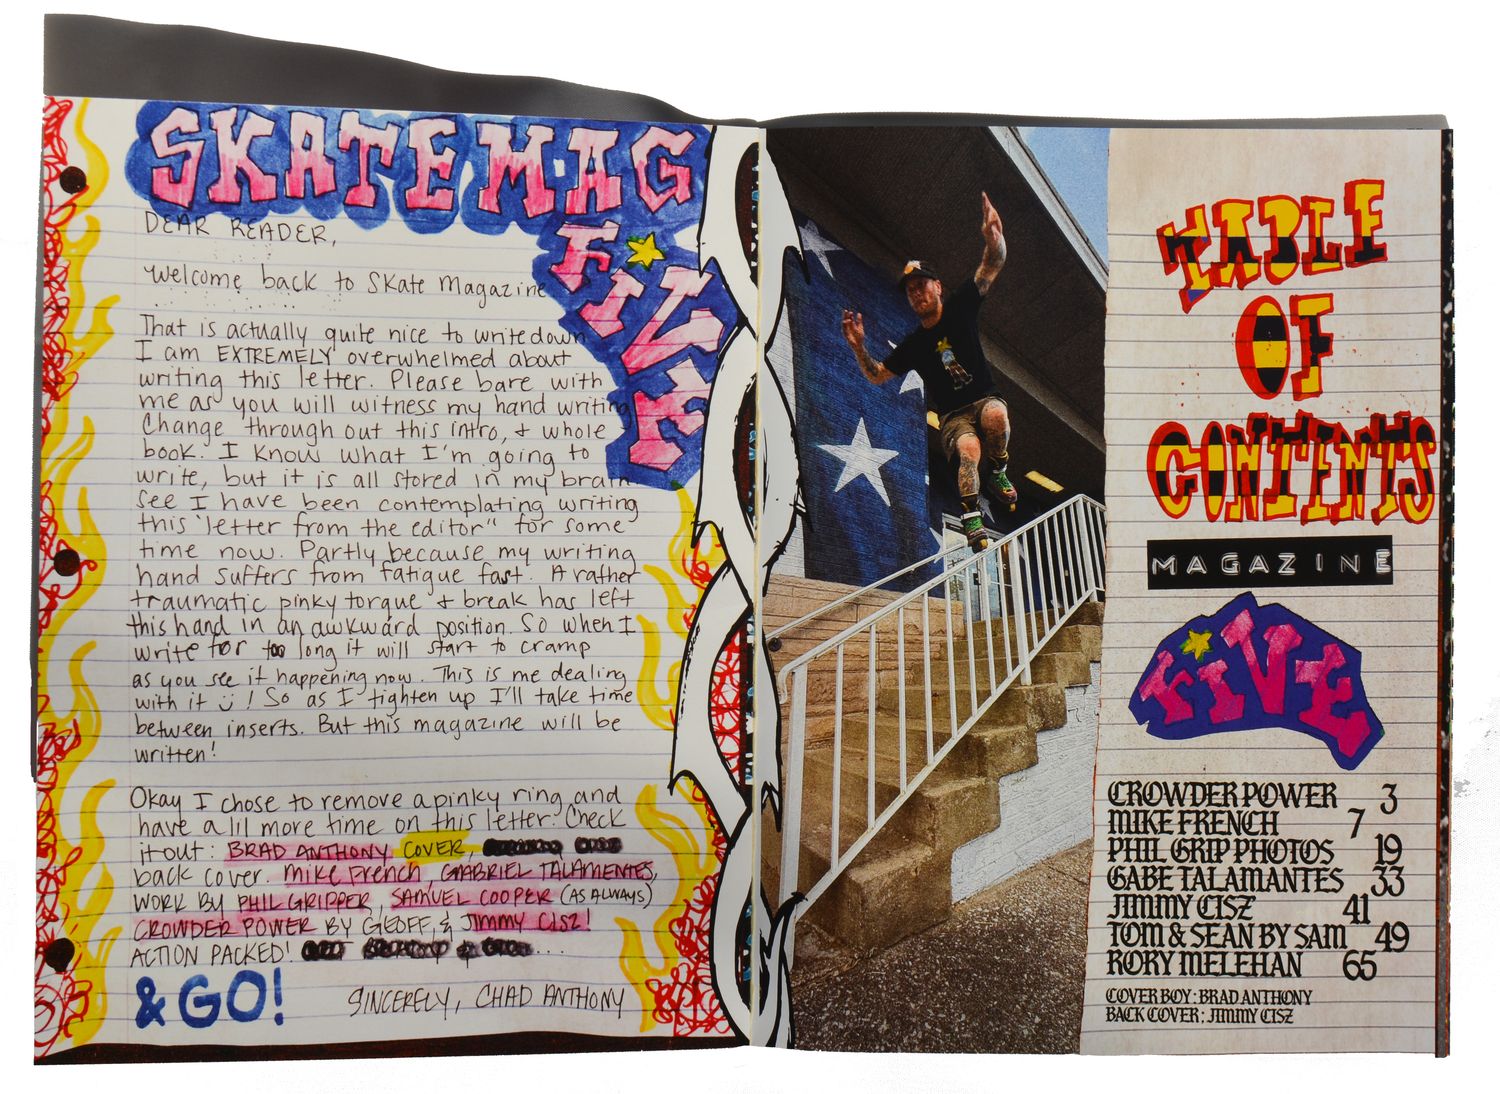 SKATEMAG
FIVE
DEAR READER,
Welcome back to Skate Magazine
That is actually quite nice to write down
I am EXTREMELY overwhelmed about
writing this letter. Please bare with
me as you will witness my hand writing
Change through out this intro, & whole
book. I know what I'm going to
write, but it is all stored in my brain
see I have been contemplating writing
this "letter from the editor" for some
time now. Partly because my writing
hand suffers from fatigue fast. A rather
traumatic pinky torque & break has left
this hand in an awkward position. So when I
write for too long it will start to cramp
as you see it happening now. This is me dealing
with it ! So as I tighten up I'll take time
between inserts. But this magazine will be
written!
Okay I chose to remove a pinky ring and
have a lil more time on this letter. Check
it out: BRAD ANTHONY COVER,
back cover. Mike French, GABRIEL TALAMENTES,
WORK BY PHIL GRIPPER, SAMUEL COOPER (AS ALWAYS)
CROWDER POWER BY GEOFF, & JIMMY CISZ!
ACTION PACKED! ...
& GO!
SINCERELY, CHAD ANTHONY
TABLE
OF
CONTENTS
MAGAZINE
FIVE
CROWDER POWER 3
MIKE FRENCH 7
PHIL GRIP PHOTOS 19
GABE TALAMANTES 33
JIMMY CISZ 41
TOM & SEAN BY SAM 49
RORY MELEHAN 65
COVER BOY : BRAD ANTHONY
BACK COVER : JIMMY CISZ